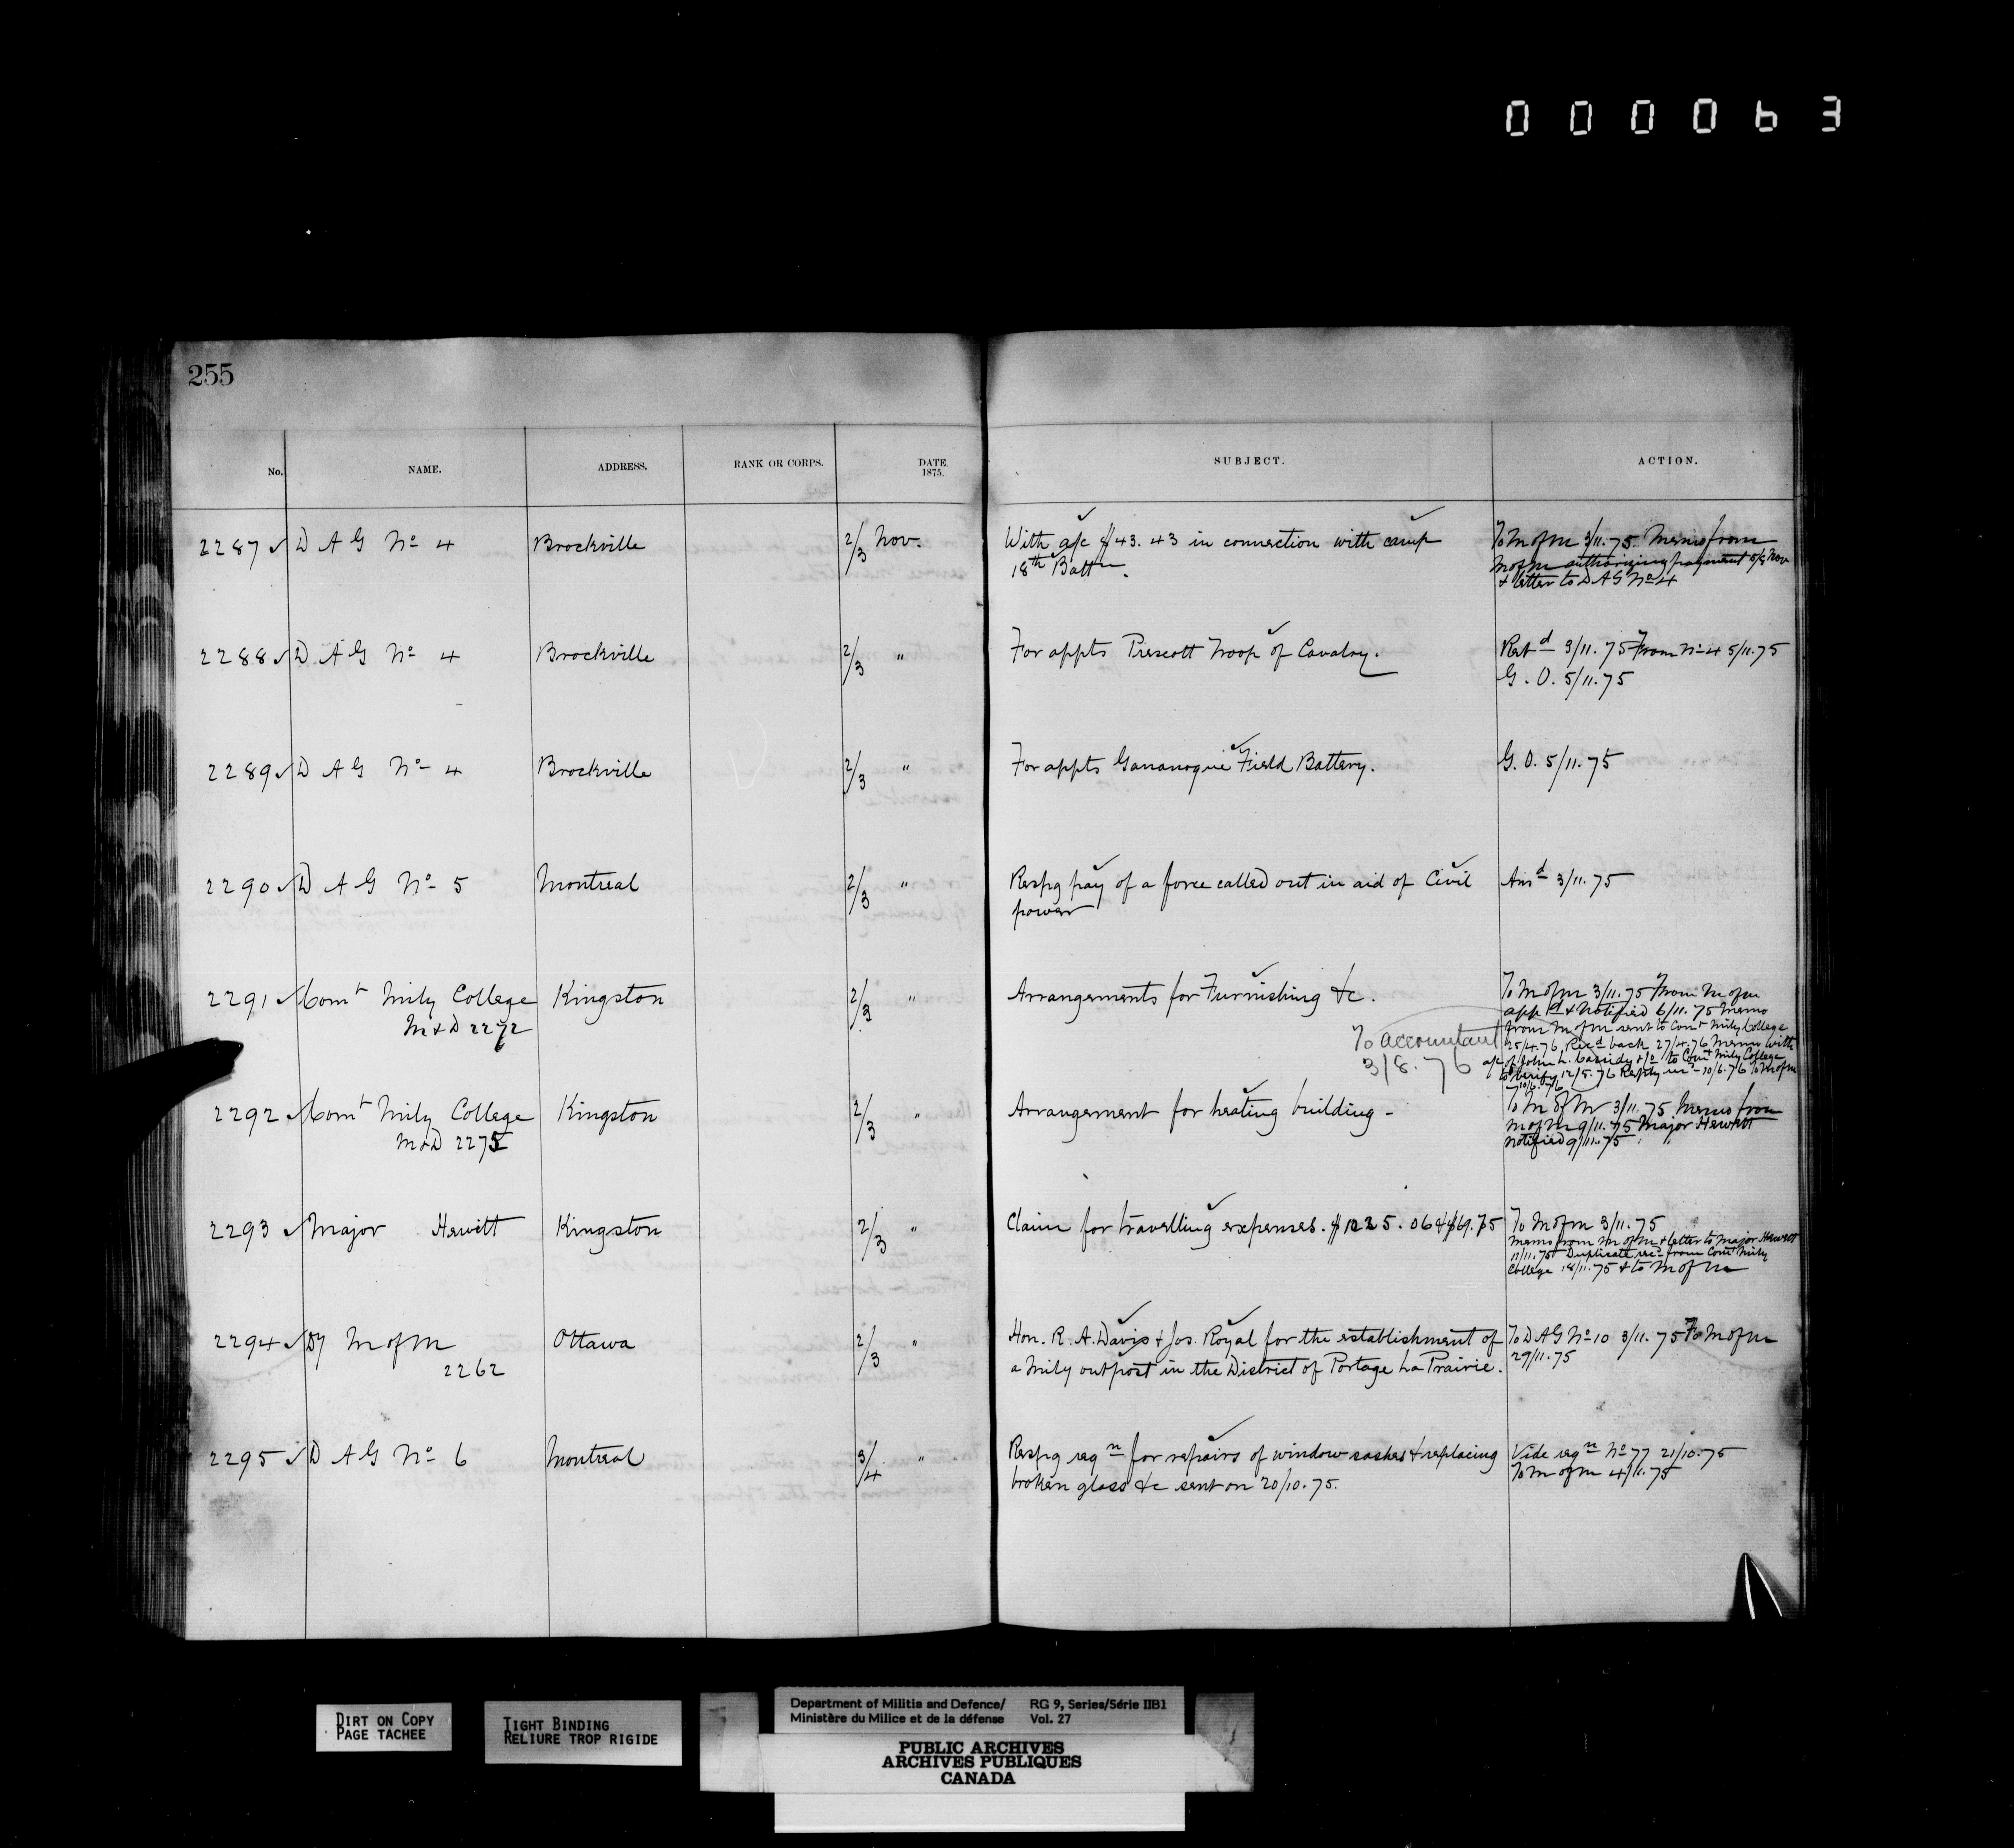 000063
255
No. NAME. ADDRESS. RANK OR CORPS. DATE 1875. SUBJECT. ACTION.
2287 ✓ D A G No 4 Brockville 2/3 Nov. With a/c $43.43 in connection with camp To M of M 3/11.75. Memo from
18th Battn. M of M authorizing payment 5/8 Nov
& letter to D A G No 4
2288 ✓ D A G No 4 Brockville 2/3 " For appts Prescott Troop of Cavalry. Retd 3/11.75 From No 4 5/11.75
G. O. 5/11.75
2289 ✓ D A G No 4 Brockville 2/3 " For appts Gananoque Field Battery. G. O. 5/11.75
2290 ✓ D A G No 5 Montreal 2/3 " Respg pay of a force called out in aid of Civil Ansd 3/11.75
power
2291 ✓ Comt Mily College Kingston 2/3 " Arrangements for Furnishing &c. To M of M 3/11.75 From M of M
M & D 2272 appd & Notified 6/11.75 Memo
from M of M sent to Comt Mily College
To accountant 25/4.76. Recd back 27/4.76 Memo with
3/8.76 a/c of John L. Cassidy & Co to Comt Mily College
to verify 12/5.76 Reply rec 10/6.76 To M of M
10/6.76
2292 ✓ Comt Mily College Kingston 2/3 " Arrangement for heating building - To M of M 3/11.75 Memo from
M & D 2275 M of M 9/11.75 Major Hewitt
notified 9/11.75
2293 ✓ Major Hewitt Kingston 2/3 " Claim for travelling expenses. $1025.06 & $69.75 To M of M 3/11.75
Memo from M of M & letter to Major Hewitt
11/11.75 Duplicate rec from Comt Mily
College 18/11.75 & to M of M
2294 ✓ Dy M of M Ottawa 2/3 " Hon. R. A. Davis & Jos. Royal for the establishment of To D A G No 10 3/11.75 To M of M
2262 a Mily outpost in the District of Portage La Prairie. 29/11.75
2295 ✓ D A G No 6 Montreal 3/4 " Respg reqn for repairs of window sashes & replacing Vide reqn No 77 21/10.75
broken glass &c sent on 20/10.75. To M of M 4/11.75
DIRT ON COPY
PAGE TACHEE
TIGHT BINDING
RELIURE TROP RIGIDE
Department of Militia and Defence/ RG 9, Series/Série IIB1
Ministère du Milice et de la défense Vol. 27
PUBLIC ARCHIVES
ARCHIVES PUBLIQUES
CANADA